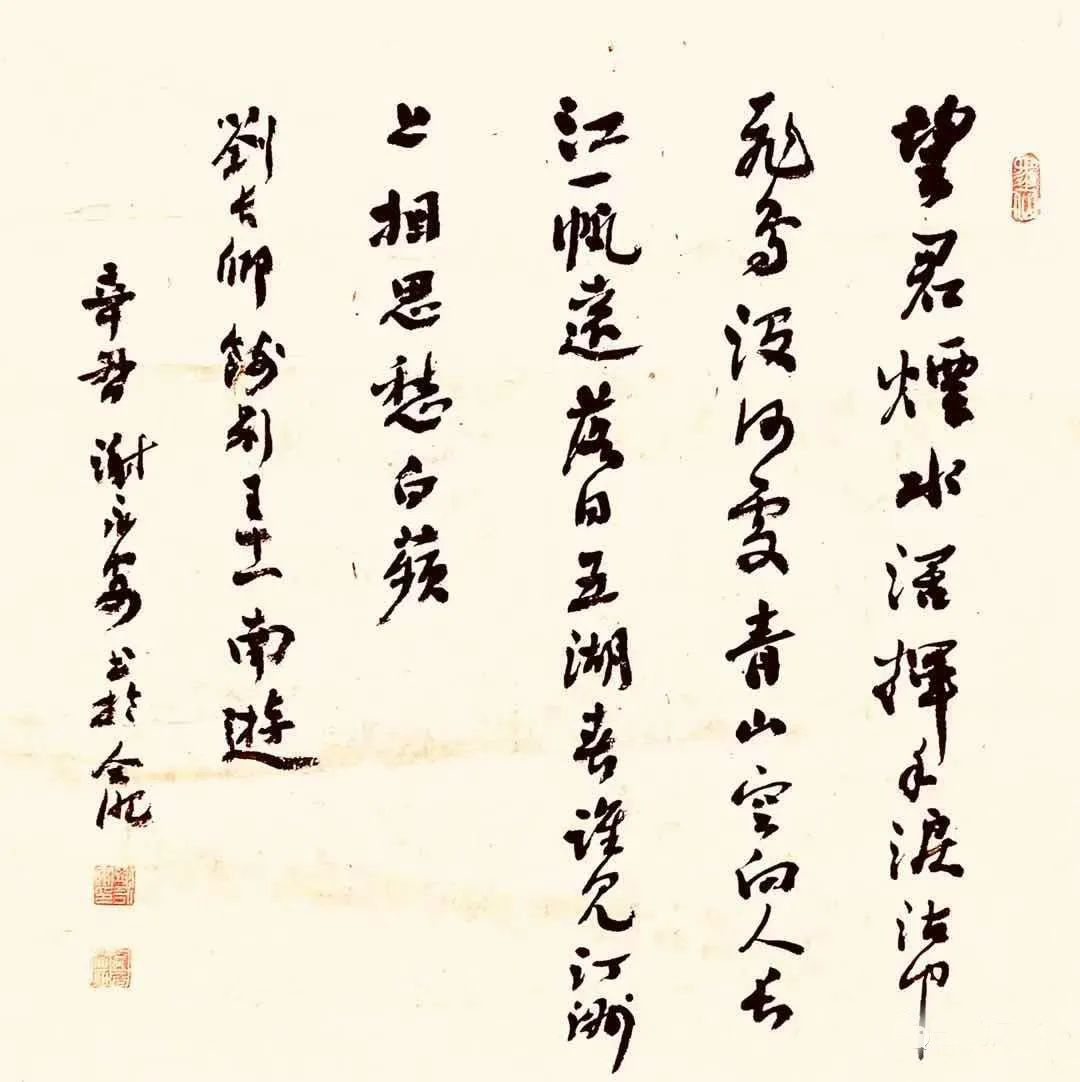 望君煙水闊揮手淚沾巾
飛鳥没何處青山空向人長
江一帆遠落日五湖春誰見汀洲
上相思愁白蘋
劉長卿餞別王十一南遊
謝永安書於合肥